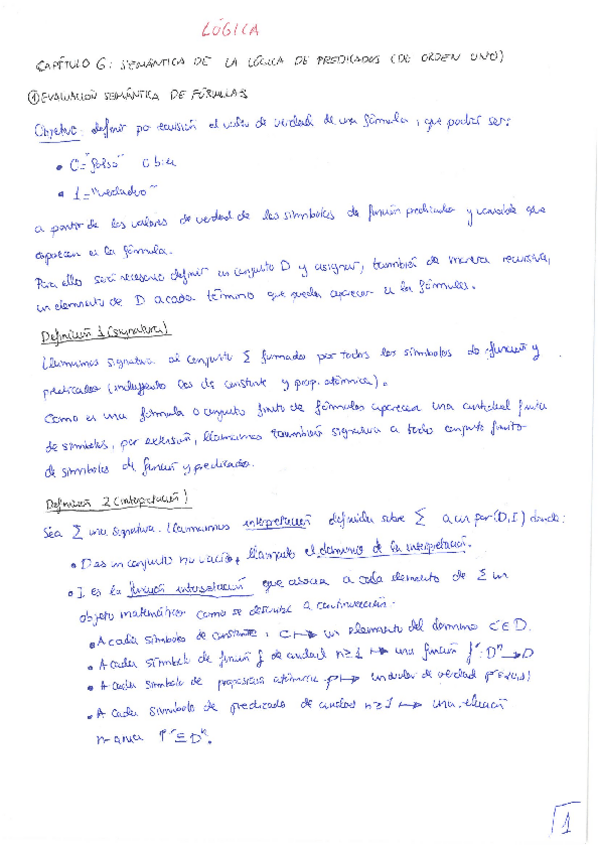 LÓGICA
CAPÍTULO 6: SEMÁNTICA DE LA LÓGICA DE PREDICADOS (DE ORDEN UNO)
① EVALUACIÓN SEMÁNTICA DE FÓRMULAS
Objetivo: definir por recursión el valor de verdad de una fórmula, que podrá ser:
• 0="falso" o bien
• 1="verdadero"
a partir de los valores de verdad de los símbolos de función predicado y variable que
aparecen en la fórmula.
Para ello será necesario definir un conjunto D y asignar, también de manera recursiva,
un elemento de D a cada término que pueda aparecer en la fórmula.
Definición 1 (signatura)
Llamamos signatura al conjunto Σ formado por todos los símbolos de función y
predicado (incluyendo los de constante y prop. atómica).
Como en una fórmula o conjunto finito de fórmulas aparecen una cantidad finita
de símbolos, por extensión, llamamos también signatura a todo conjunto finito
de símbolos de función y predicado.
Definición 2 (interpretación)
Sea Σ una signatura. Llamamos interpretación definida sobre Σ a un par (D,I) donde:
• D es un conjunto no vacío, llamado el dominio de la interpretación.
• I es la función interpretación que asocia a cada elemento de Σ un
objeto matemático como se describe a continuación.
• A cada símbolo de constante, c ↦ un elemento del dominio c' ∈ D.
• A cada símbolo de función f de aridad n≥1 ↦ una función f': Dⁿ → D
• A cada símbolo de proposición atómica p ↦ un valor de verdad
• A cada símbolo de predicado de aridad n≥1 ↦ una relación
n-aria ⊆ Dⁿ.
1